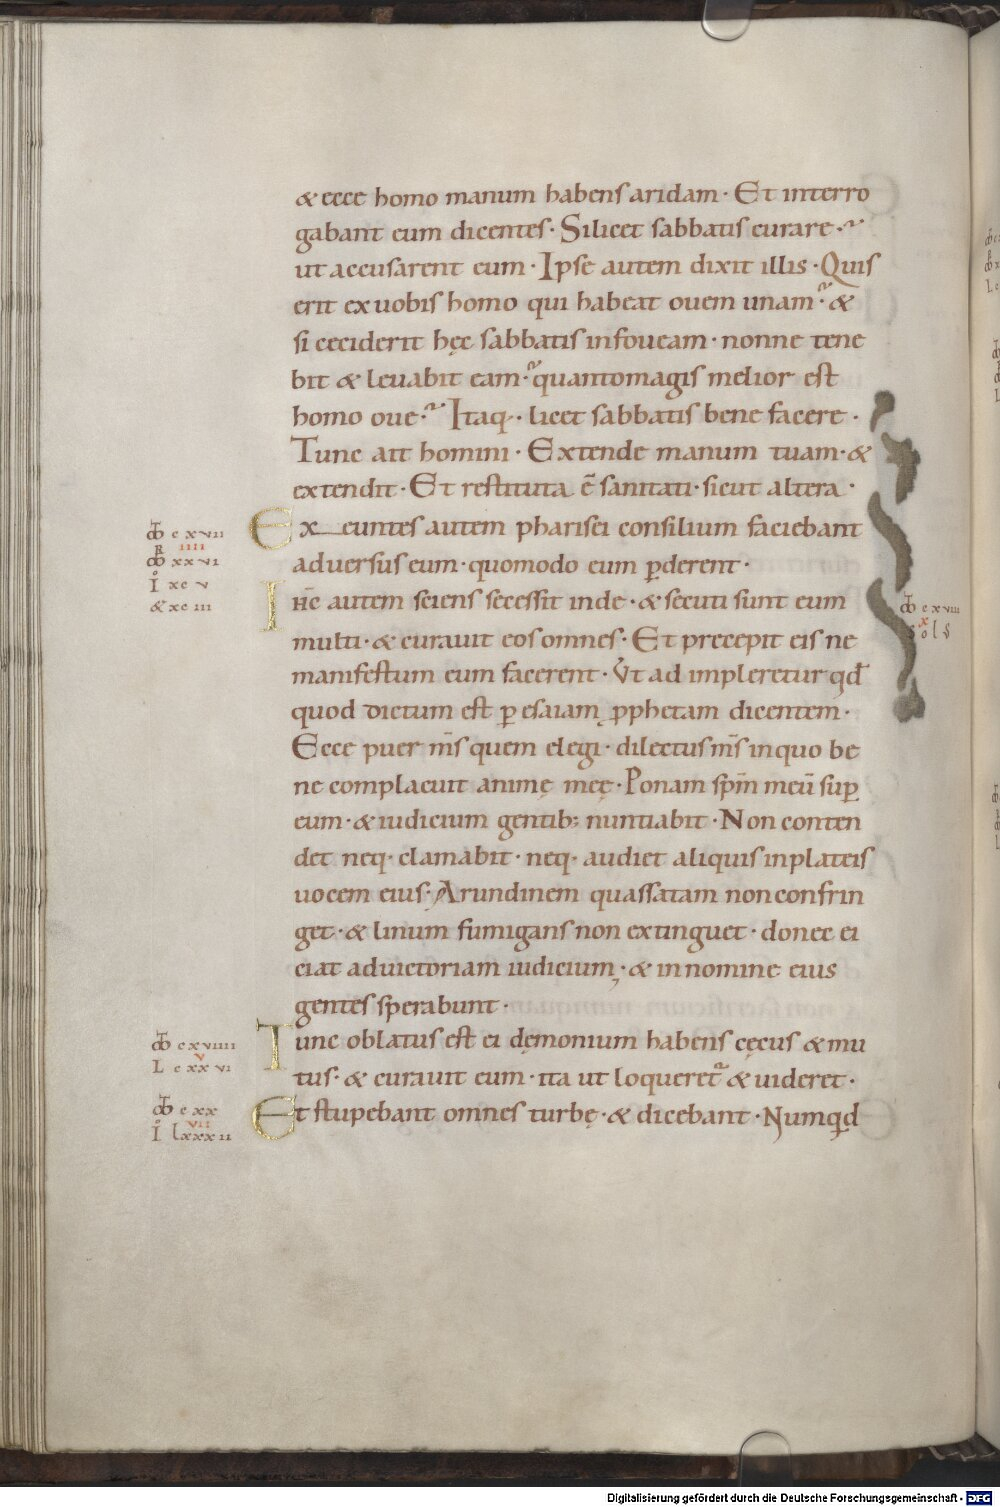 & ecce homo manum habens aridam· Et interro
gabant eum dicentes· Si licet sabbatis curare·
ut accusarent eum· Ipse autem dixit illis· Quis
erit ex uobis homo qui habeat ouem unam· &
si ceciderit hęc sabbatis in foueam· nonne tene
bit & leuabit eam· quanto magis melior est
homo oue· Itaq· licet sabbatis bene facere·
Tunc ait homini· Extende manum tuam· &
extendit· Et restituta ē sanitati· sicut altera·
Ex euntes autem pharisei consilium faciebant
c x vii
iiii
xx vi
aduersus eum· quomodo eum ꝑderent·
I xc v
ihc̄ autem sciens secessit inde· & secuti sunt eum
& xc iii
c x viii
x
multi· & curauit eos omnes· Et precepit eis ne
sols
manifestum eum facerent· Ut ad impleretur qd̄
quod dictum est per esaiam ꝓphetam dicentem·
Ecce puer m̄s quem elegi· dilectus m̄s in quo be
ne complacuit animę meę· Ponam spm̄ meū suꝑ
eum· & iudicium gentib; nuntiabit· Non conten
det neq· clamabit· neq· audiet aliquis in plateis
uocem eius· Arundinem quassatam non confrin
get· & linum fumigans non extinguet· donec ei
ciat ad uictoriam iudicium· & in nomine eius
gentes sperabunt·
Tunc oblatus est ei dęmonium habens cęcus & mu
c x viiii
v
L c xx vi
tus· & curauit eum· ita ut loqueret᷑ & uideret·
Et stupebant omnes turbę· & dicebant· Numqd
c xx
vii
I lxxx ii
Digitalisierung gefördert durch die Deutsche Forschungsgemeinschaft - DFG